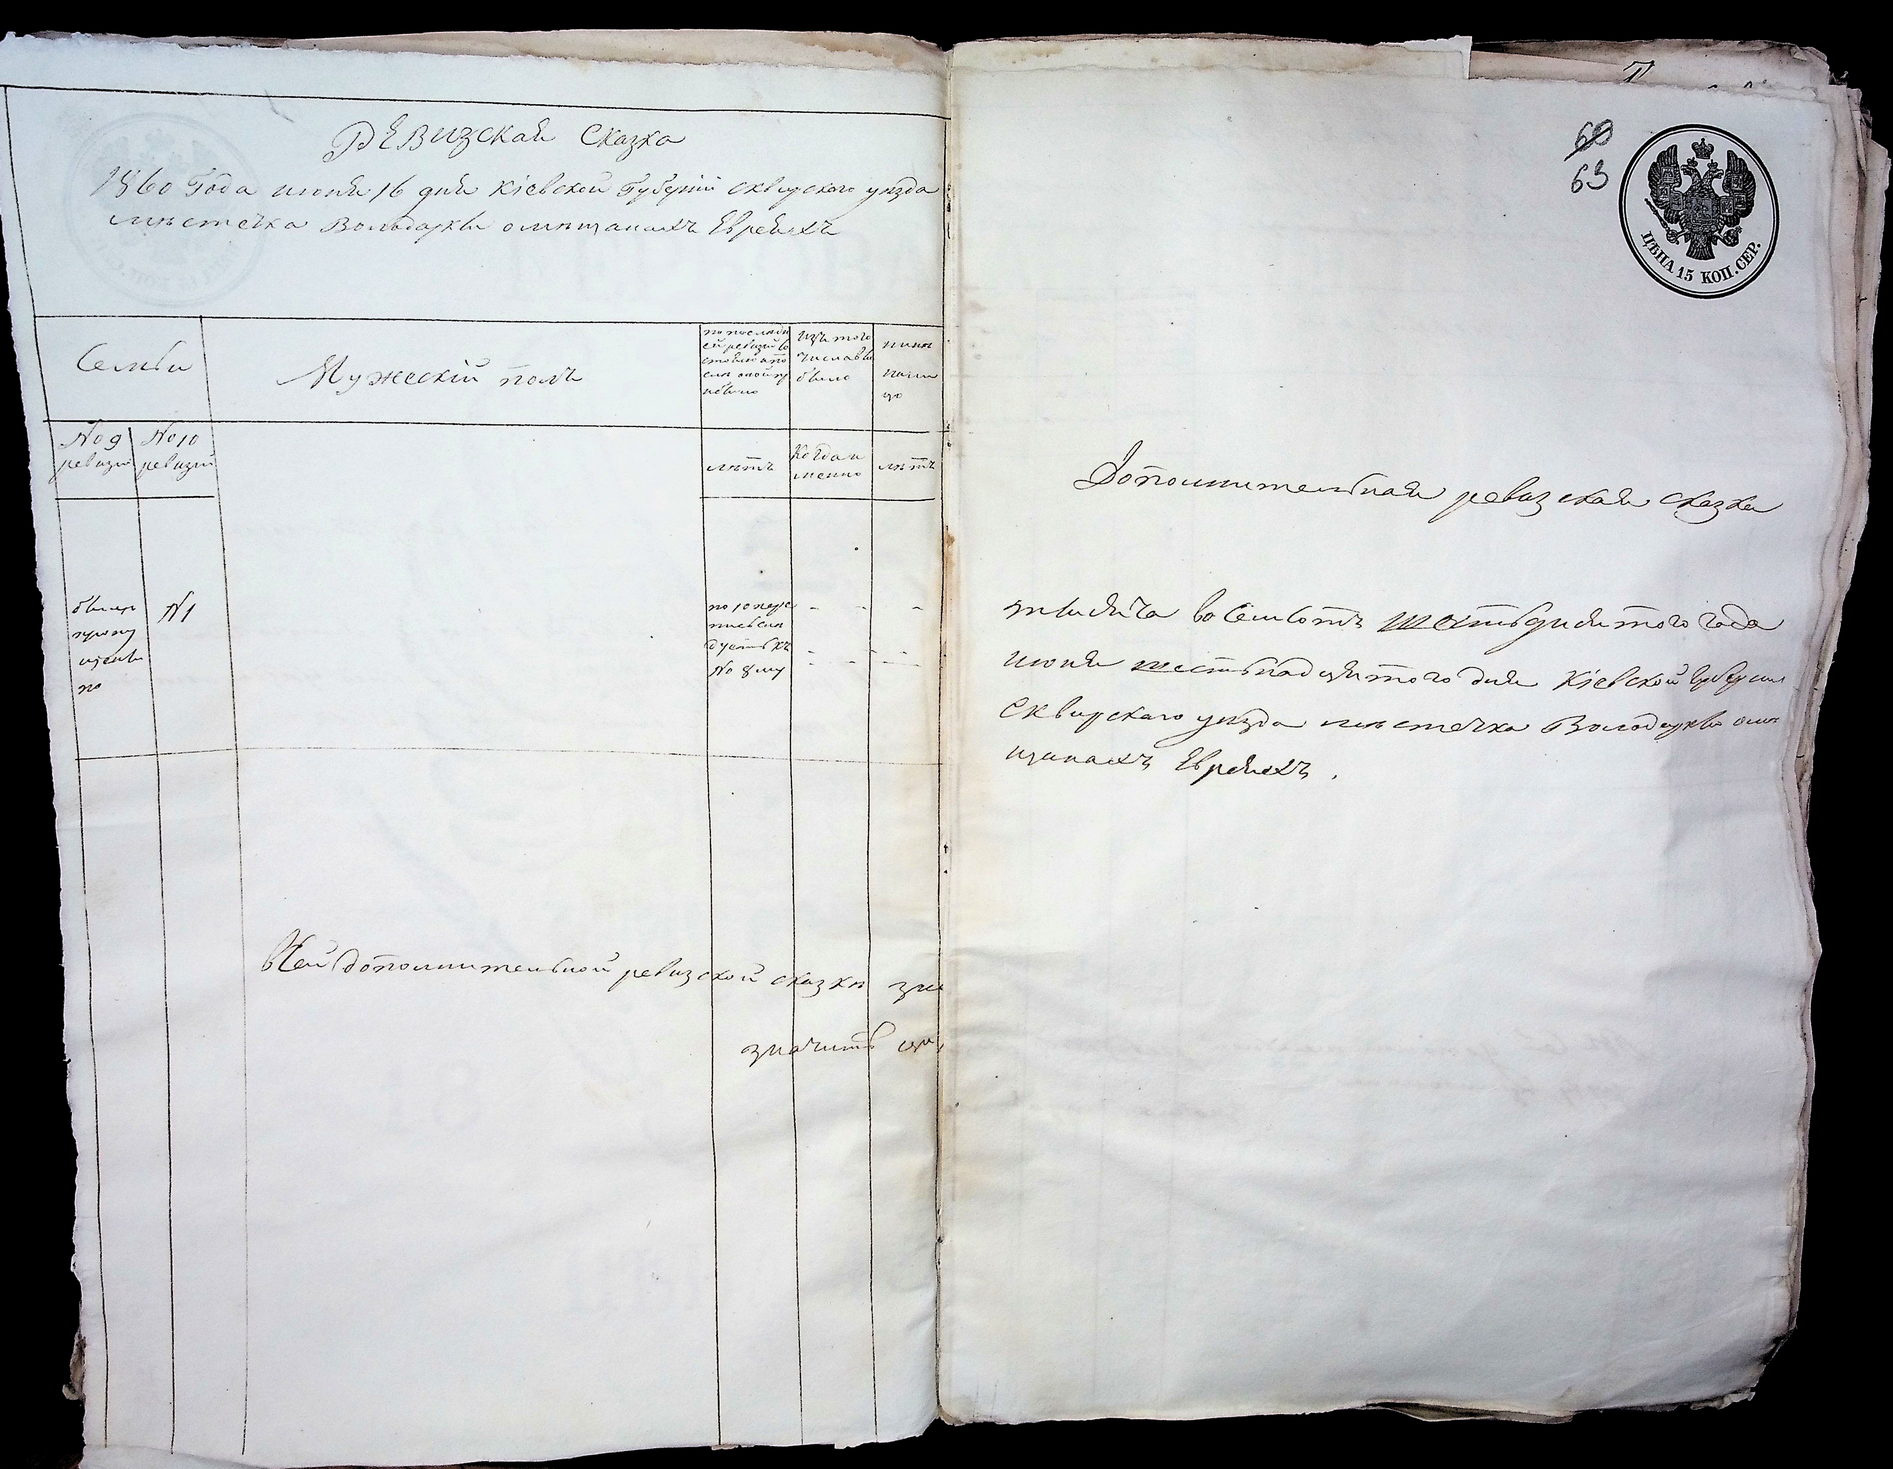 Ревизская Сказка
1860 Года июня 16 дня Кіевской Губерніи Сквирского уѣзда
мѣстечка Володарки о мѣщанахъ Евреяхъ
Семьи
Мужескій полъ
по послѣдн
ей ревизіи со
стояло и по
слѣ оной пр
ибыло
Изъ того
числа вы
было
нынѣ
на ли
цо
№ 9
ревизіи
№ 10
ревизіи
лѣтъ
Когда и
менно
лѣтъ
были
пропу
щены
по
№ 1
по 10 пере
писи слѣ
дуетъ къ
№ 8му
дополнительной ревизской сказкѣ
значить
60
63
ЦѢНА 15 КОП. СЕР.
Дополнительная ревизская сказка
тысяча восемьсотъ шестьдесятого года
июня шестьнадцятого дня Кіевской Губерніи
Сквирскаго уѣзда мѣстечка Володарки о мѣ
щанахъ Евреяхъ.